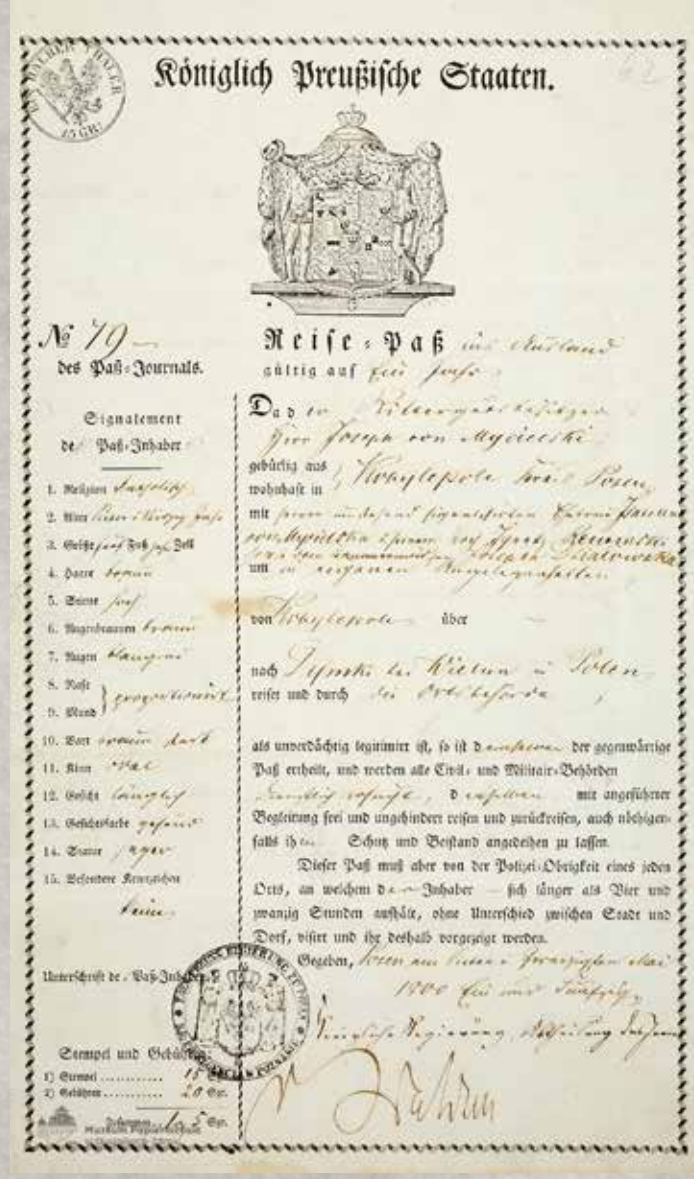 EIN HALBER THALER
15 GR:
62
Königlich Preußische Staaten.
№ 79
des Paß-Journals.
Signalement
de Paß-Inhaber
1. Religion
2. Alter
3. Größe Fuß Zoll
4. Haare braun
5. Stirne hoch
6. Augenbraunen braun
7. Augen blaugrau
8. Nase
9. Mund
proportionirt
10. Bart braun stark
11. Kinn oval
12. Gesicht länglich
13. Gesichtsfarbe gesund
14. Statur hager
15. Besondere Kennzeichen
keine
Unterschrift de Paß-Inhabers
Stempel und Gebühren:
1) Stempel ........... 15 Sgr.
2) Gebühren ........... 20 Sgr.
5 Sgr.
Reise-Paß ins Ausland
gültig auf Ein Jahr
Da der Rittergutsbesitzer
Herr Joseph von Mycielski
gebürtig aus
wohnhaft in
Kobylepole Kreis Posen
mit
von Mycielska
um in eigenen Angelegenheiten
von Kobylepole über
nach bei Wielun in Polen
reiset und durch die Ortsbehörde
als unverdächtig legitimirt ist, so ist demselben der gegenwärtige
Paß ertheilt, und werden alle Civil- und Militair-Behörden
dienstlich ersucht, denselben mit angeführter
Begleitung frei und ungehindert reisen und zurückreisen, auch nöthigen-
falls ihm Schutz und Beistand angedeihen zu lassen.
Dieser Paß muß aber von der Polizei-Obrigkeit eines jeden
Orts, an welchem der Inhaber sich länger als Vier und
zwanzig Stunden aufhält, ohne Unterschied zwischen Stadt und
Dorf, visirt und ihr deshalb vorgezeigt werden.
Gegeben, Posen am zwanzigsten Mai
1800 Ein und Fünfzig
Königliche Regierung, Abtheilung des Innern